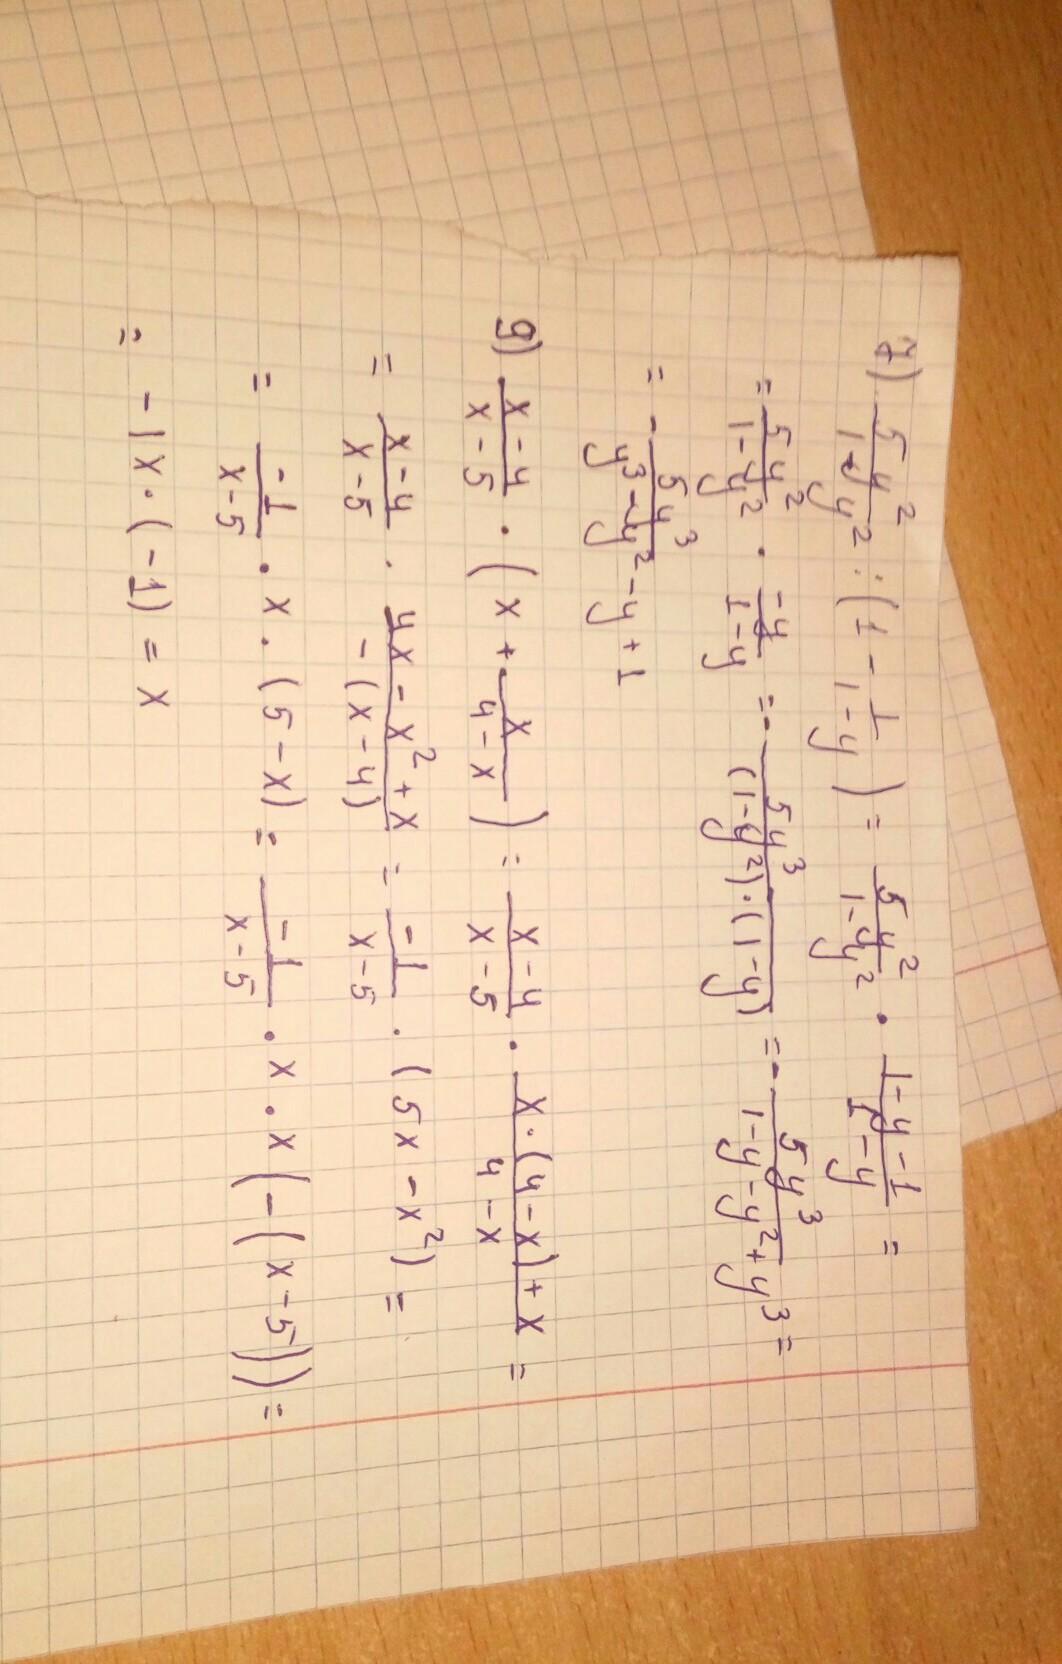 7) 5y²/1-y² : (1 - 1/1-y) = 5y²/1-y² · 1-y-1/1-y =
= 5y²/1-y² · -y/1-y = - 5y³/(1-y²)·(1-y) = - 5y³/1-y-y²+y³ =
= - 5y³/y³-y²-y+1
9) x-4/x-5 · (x + x/4-x) = x-4/x-5 · x·(4-x)+x/4-x =
= x-4/x-5 · 4x-x²+x/-(x-4) = -1/x-5 · (5x-x²) =
= -1/x-5 · x · (5-x) = -1/x-5 · x · x(-(x-5)) =
= -1x · (-1) = x